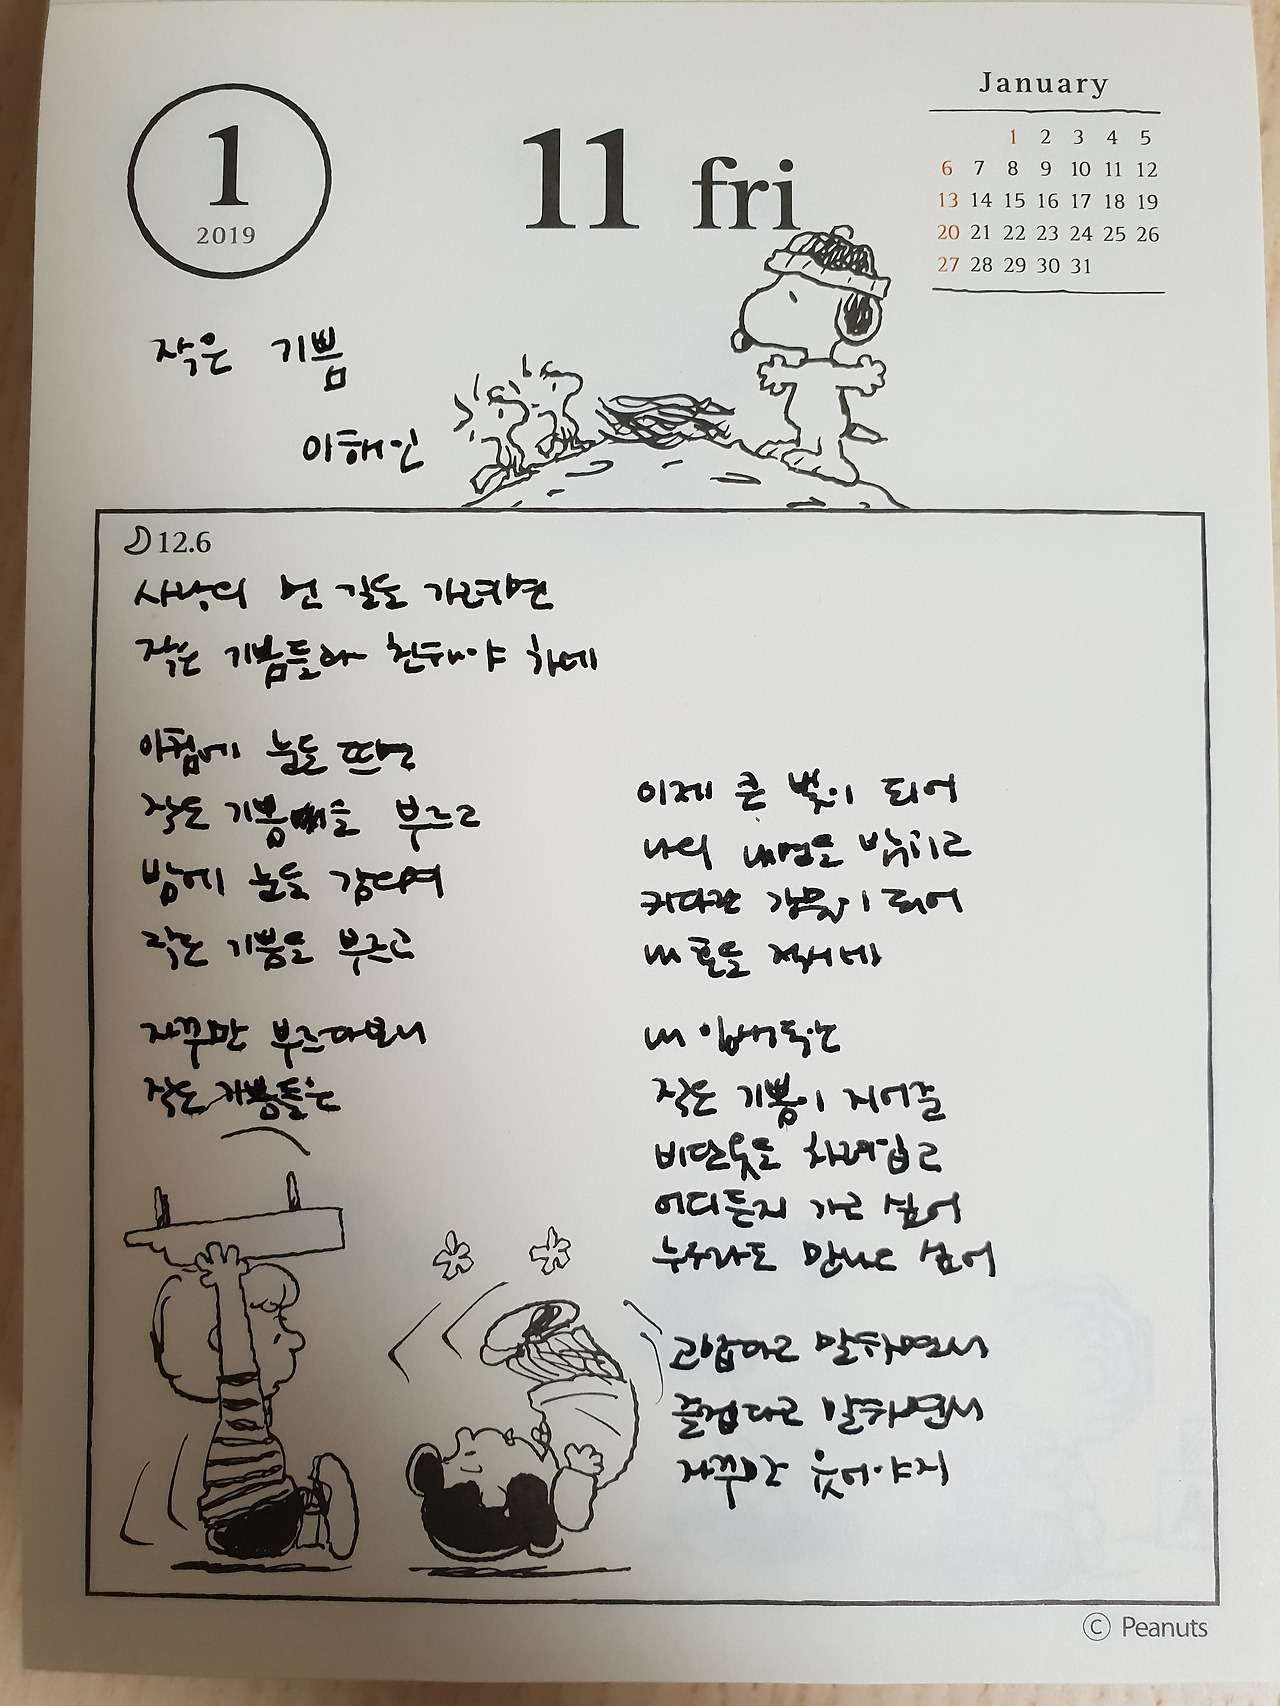 1
2019
11 fri
January
1 2 3 4 5
6 7 8 9 10 11 12
13 14 15 16 17 18 19
20 21 22 23 24 25 26
27 28 29 30 31
작은 기쁨
이해인
12.6
사랑의 먼 길을 가려면
작은 기쁨들과 친해야 하네
아침에 눈을 뜨면
작은 기쁨을 부르고
밤에 눈을 감으며
작은 기쁨을 부르고
자꾸만 부르다보니
작은 기쁨들은
이제 큰 빛이 되어
나의 내면을 밝히고
커다란 강물이 되어
내 혼을 적시네
내 일생동안
작은 기쁨이 지어준
비단옷을 차려입고
어디든지 가고 싶어
누구라도 만나고 싶어
고맙다고 말하면서
즐겁다고 말하면서
자꾸만 웃어야지
© Peanuts